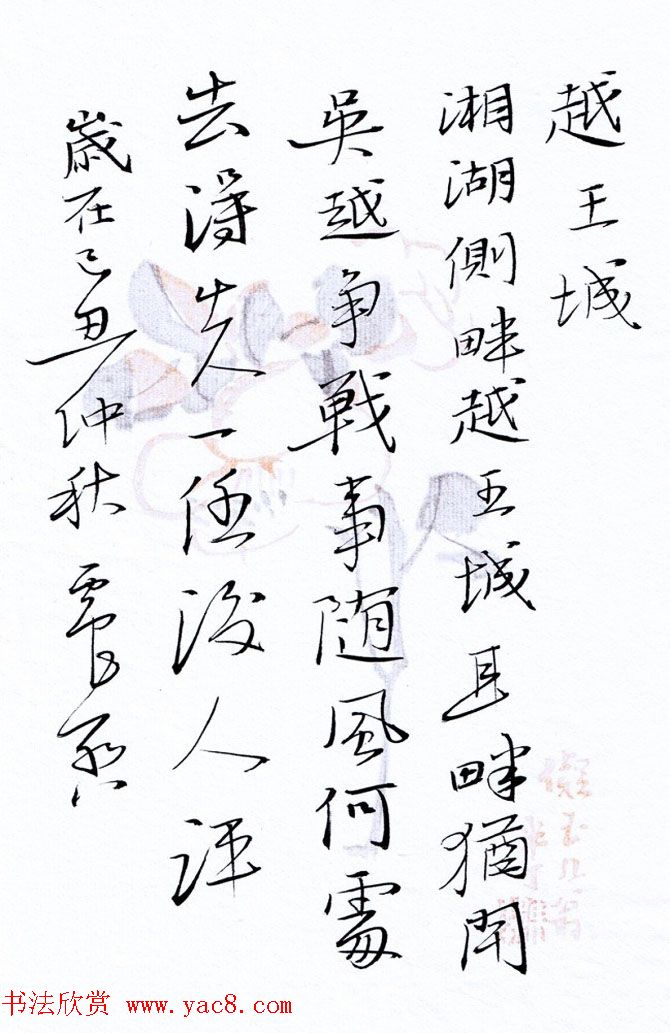 越王城
湘湖側畔越王城耳畔猶聞
吳越争戰事随風何處
去得失一任後人評
歲在己丑仲秋
书法欣赏 www.yac8.com